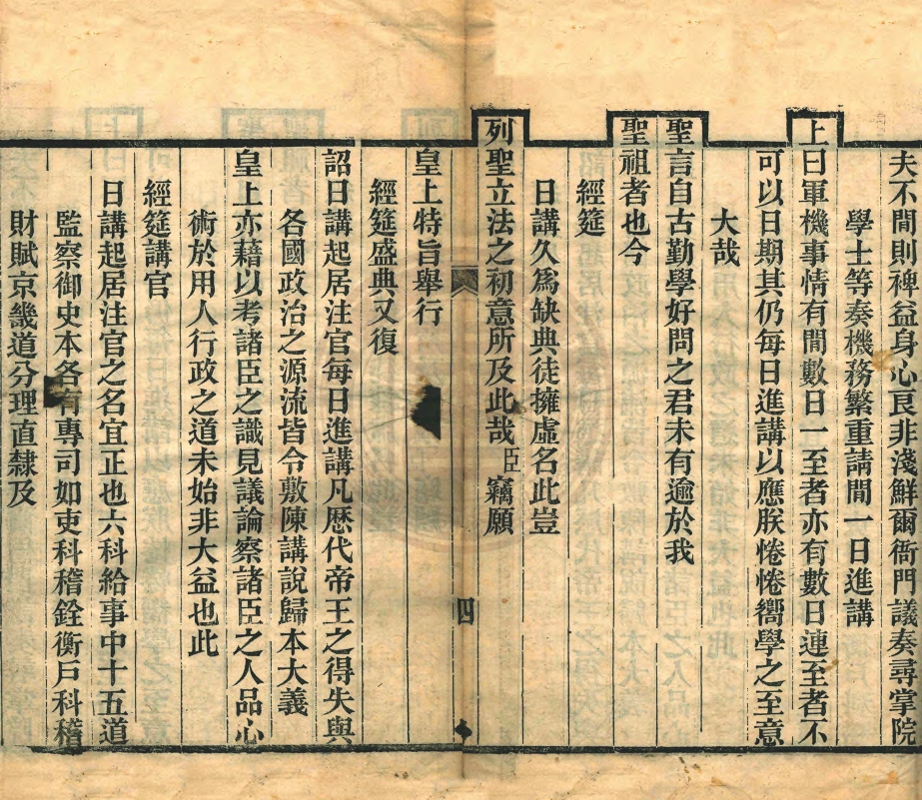 夫不間則裨益身心良非淺鮮爾衙門議奏尋掌院
學士等奏機務繁重請間一日進講
上曰軍機事情有間數日一至者亦有數日連至者不
可以日期其仍每日進講以應朕惓惓嚮學之至意
大哉
聖言自古勤學好問之君未有逾於我
聖祖者也今
經筵
日講久爲缺典徒擁虛名此豈
列聖立法之初意所及此哉臣竊願
四
皇上特旨舉行
經筵盛典又復
詔日講起居注官每日進講凡歷代帝王之得失與
各國政治之源流皆令敷陳講說歸本大義
皇上亦藉以考諸臣之識見議論察諸臣之人品心
術於用人行政之道未始非大益也此
經筵講官
日講起居注官之名宜正也六科給事中十五道
監察御史本各有專司如吏科稽銓衡戶科稽
財賦京畿道分理直隸及